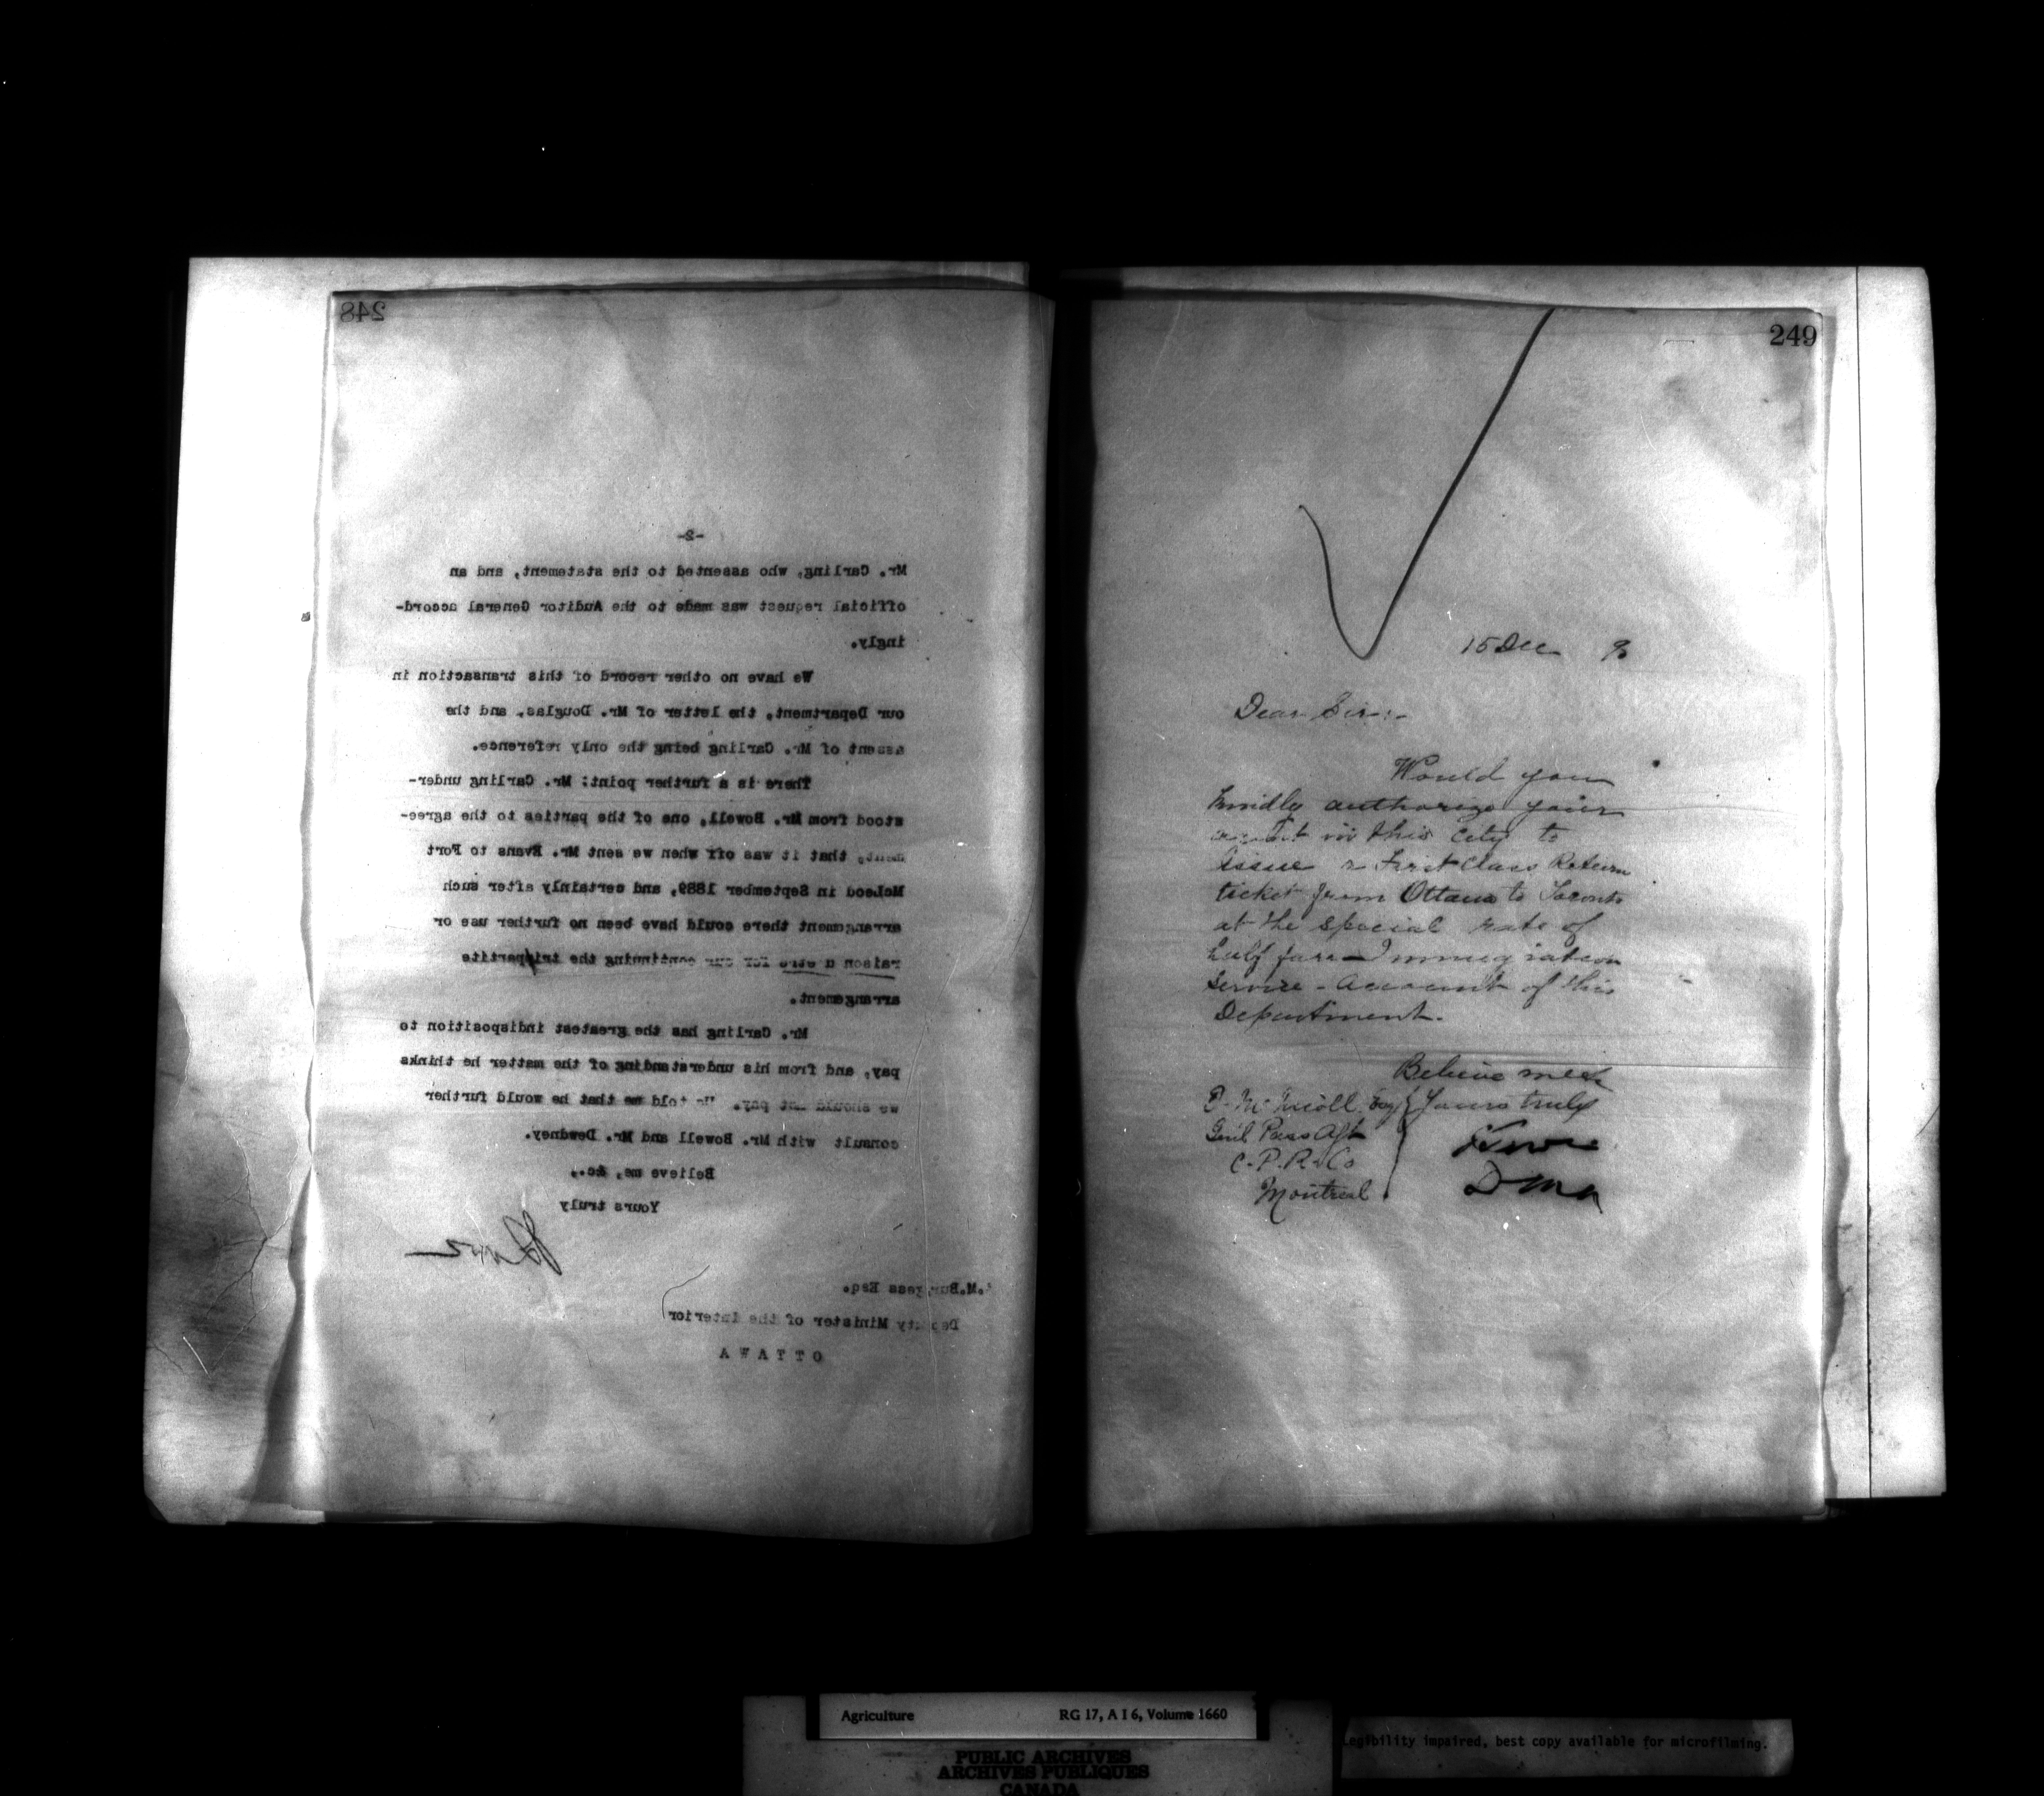 248
-2-
Mr. Carling, who assented to the statement, and an
official request was made to the Auditor General accord-
ingly.
We have no other record of this transaction in
our Department, the letter of Mr. Douglas, and the
assent of Mr. Carling being the only reference.
There is a further point: Mr. Carling under-
stood from Mr. Bowell, one of the parties to the agree-
ment, that it was off when we sent Mr. Evans to Fort
McLeod in September 1889, and certainly after such
arrangement there could have been no further use or
raison d etre for our continuing the tripartite
arrangement.
Mr. Carling has the greatest indisposition to
pay, and from his understanding of the matter he thinks
we should not pay. He told me that he would further
consult with Mr. Bowell and Mr. Dewdney.
Believe me, &c.,
Yours truly
Lowe
.M.Burgess Esq.
Deputy Minister of the Interior
OTTAWA
249
15 Dec 90
Dear Sir:-
Would you
kindly authorize your
agent in this City to
issue a First Class Return
ticket from Ottawa to Toronto
at the special rate of
half fare - Immigration
Service - Account of this
Department.
Believe me
Yours truly
Lowe
D M A
D. McNicoll Esq
Genl Pass Agt
C. P. R. Co
Montreal
Agriculture RG 17, A I 6, Volume 1660
PUBLIC ARCHIVES
ARCHIVES PUBLIQUES
CANADA
Legibility impaired, best copy available for microfilming.